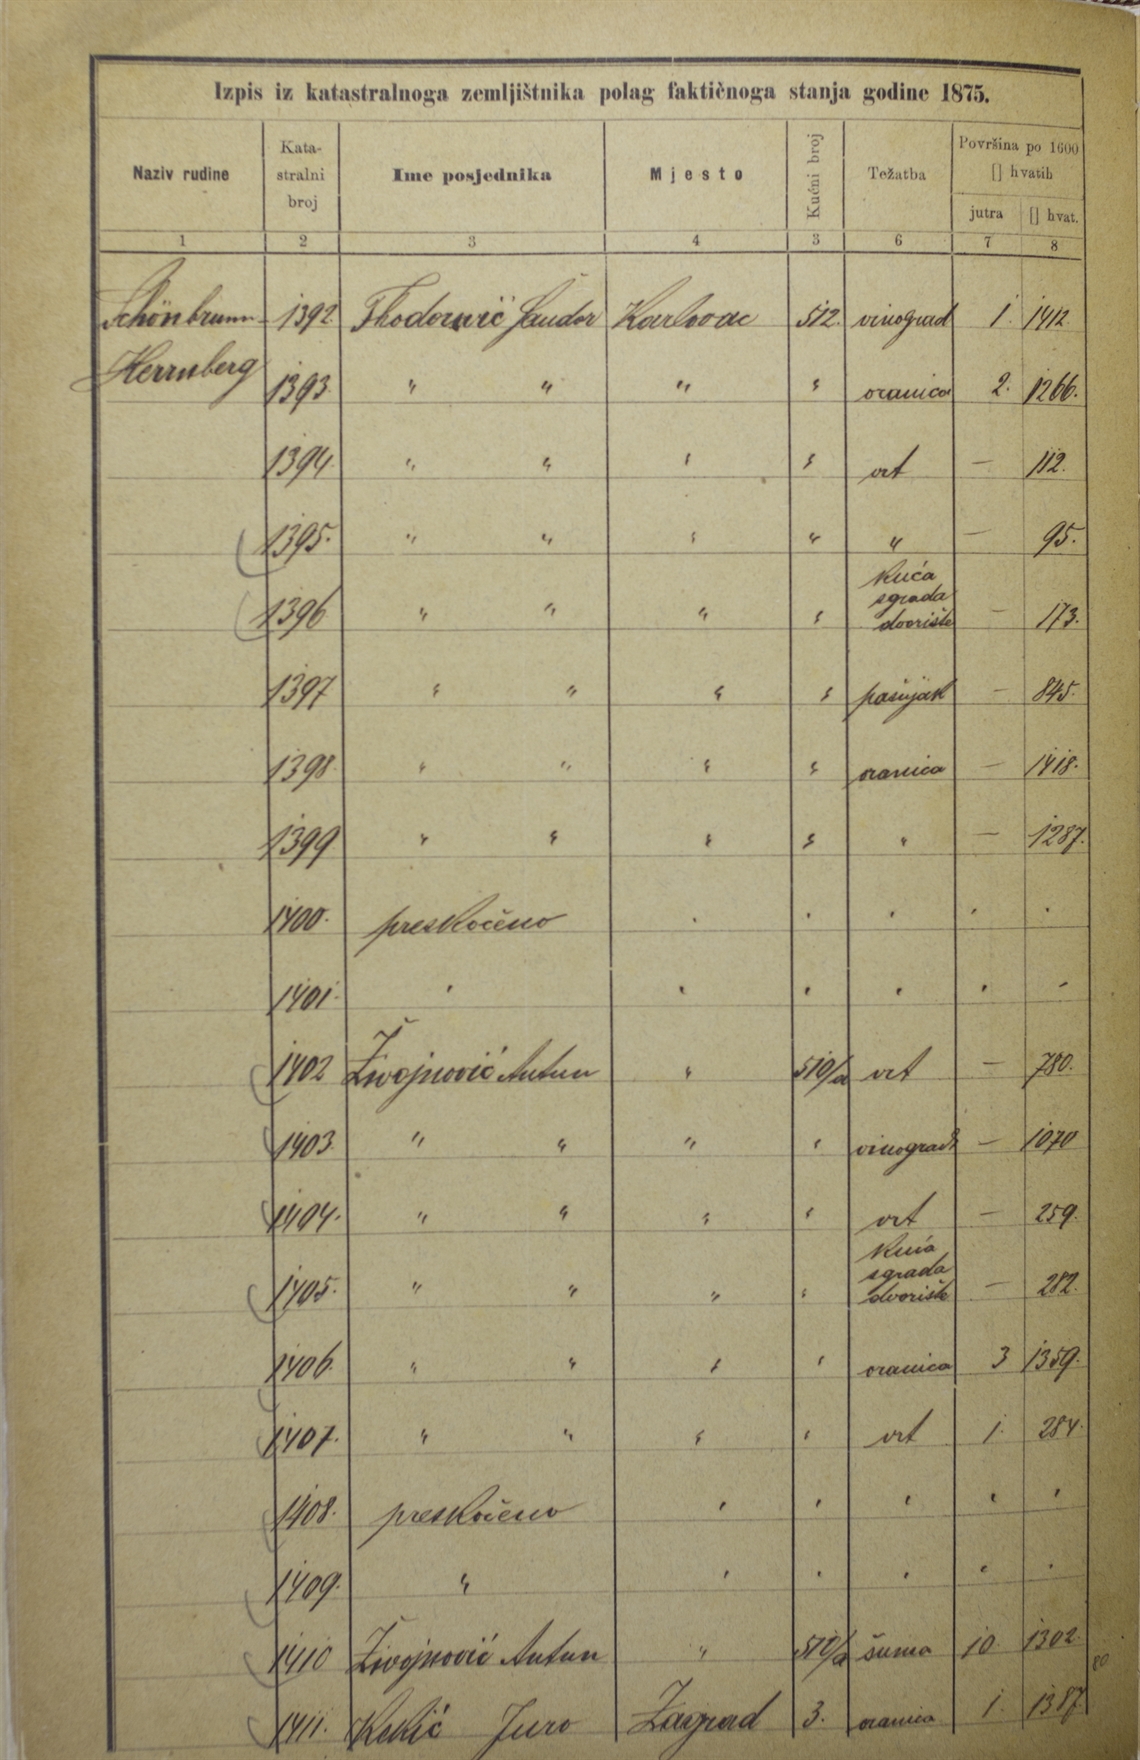 Izpis iz katastralnoga zemljištnika polag faktičnoga stanja godine 1875.
Naziv rudine Kata-stralni broj Ime posjednika Mjesto Kućni broj Težatba Površina po 1600 [] hvatih
jutra [] hvat.
1 2 3 4 3 6 7 8
Schönbrunn 1392. Thodorović Sandor Karlovac 512. vinograd 1. 1412.
Herrnberg 1393. " " " " oranica 2. 1266.
1394. " " " " vrt — 112.
1395. " " " " " — 95.
1396 " " " " kuća sgrada dvorište — 173.
1397 " " " " pašnjak — 845.
1398. " " " " oranica — 1418.
1399 " " " " " — 1287.
1400. preskočeno " " " " "
1401. " " " " " "
1402 Živojnović Antun " 510/a vrt — 780.
1403. " " " " vinograd — 1070
1404. " " " " vrt — 259.
1405. " " " " kuća sgrada dvorište — 282.
1406. " " " " oranica 3 1359.
1407. " " " " vrt 1. 284.
1408. preskočeno " " " " "
1409. " " " " " "
1410 Živojnović Antun " 510/a šuma 10. 1302.
80
1411. Kekić Juro Zagrad 3. oranica 1. 1387.